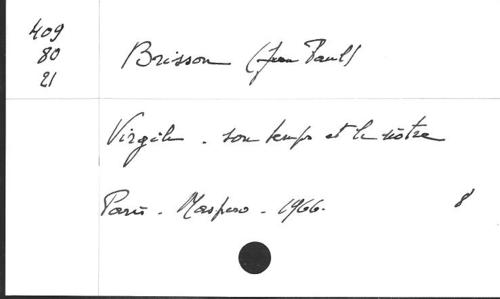 409
80
21
Brisson (Jean Paul)
Virgile. son temps et le nôtre
Paris - Maspero - 1966.
8